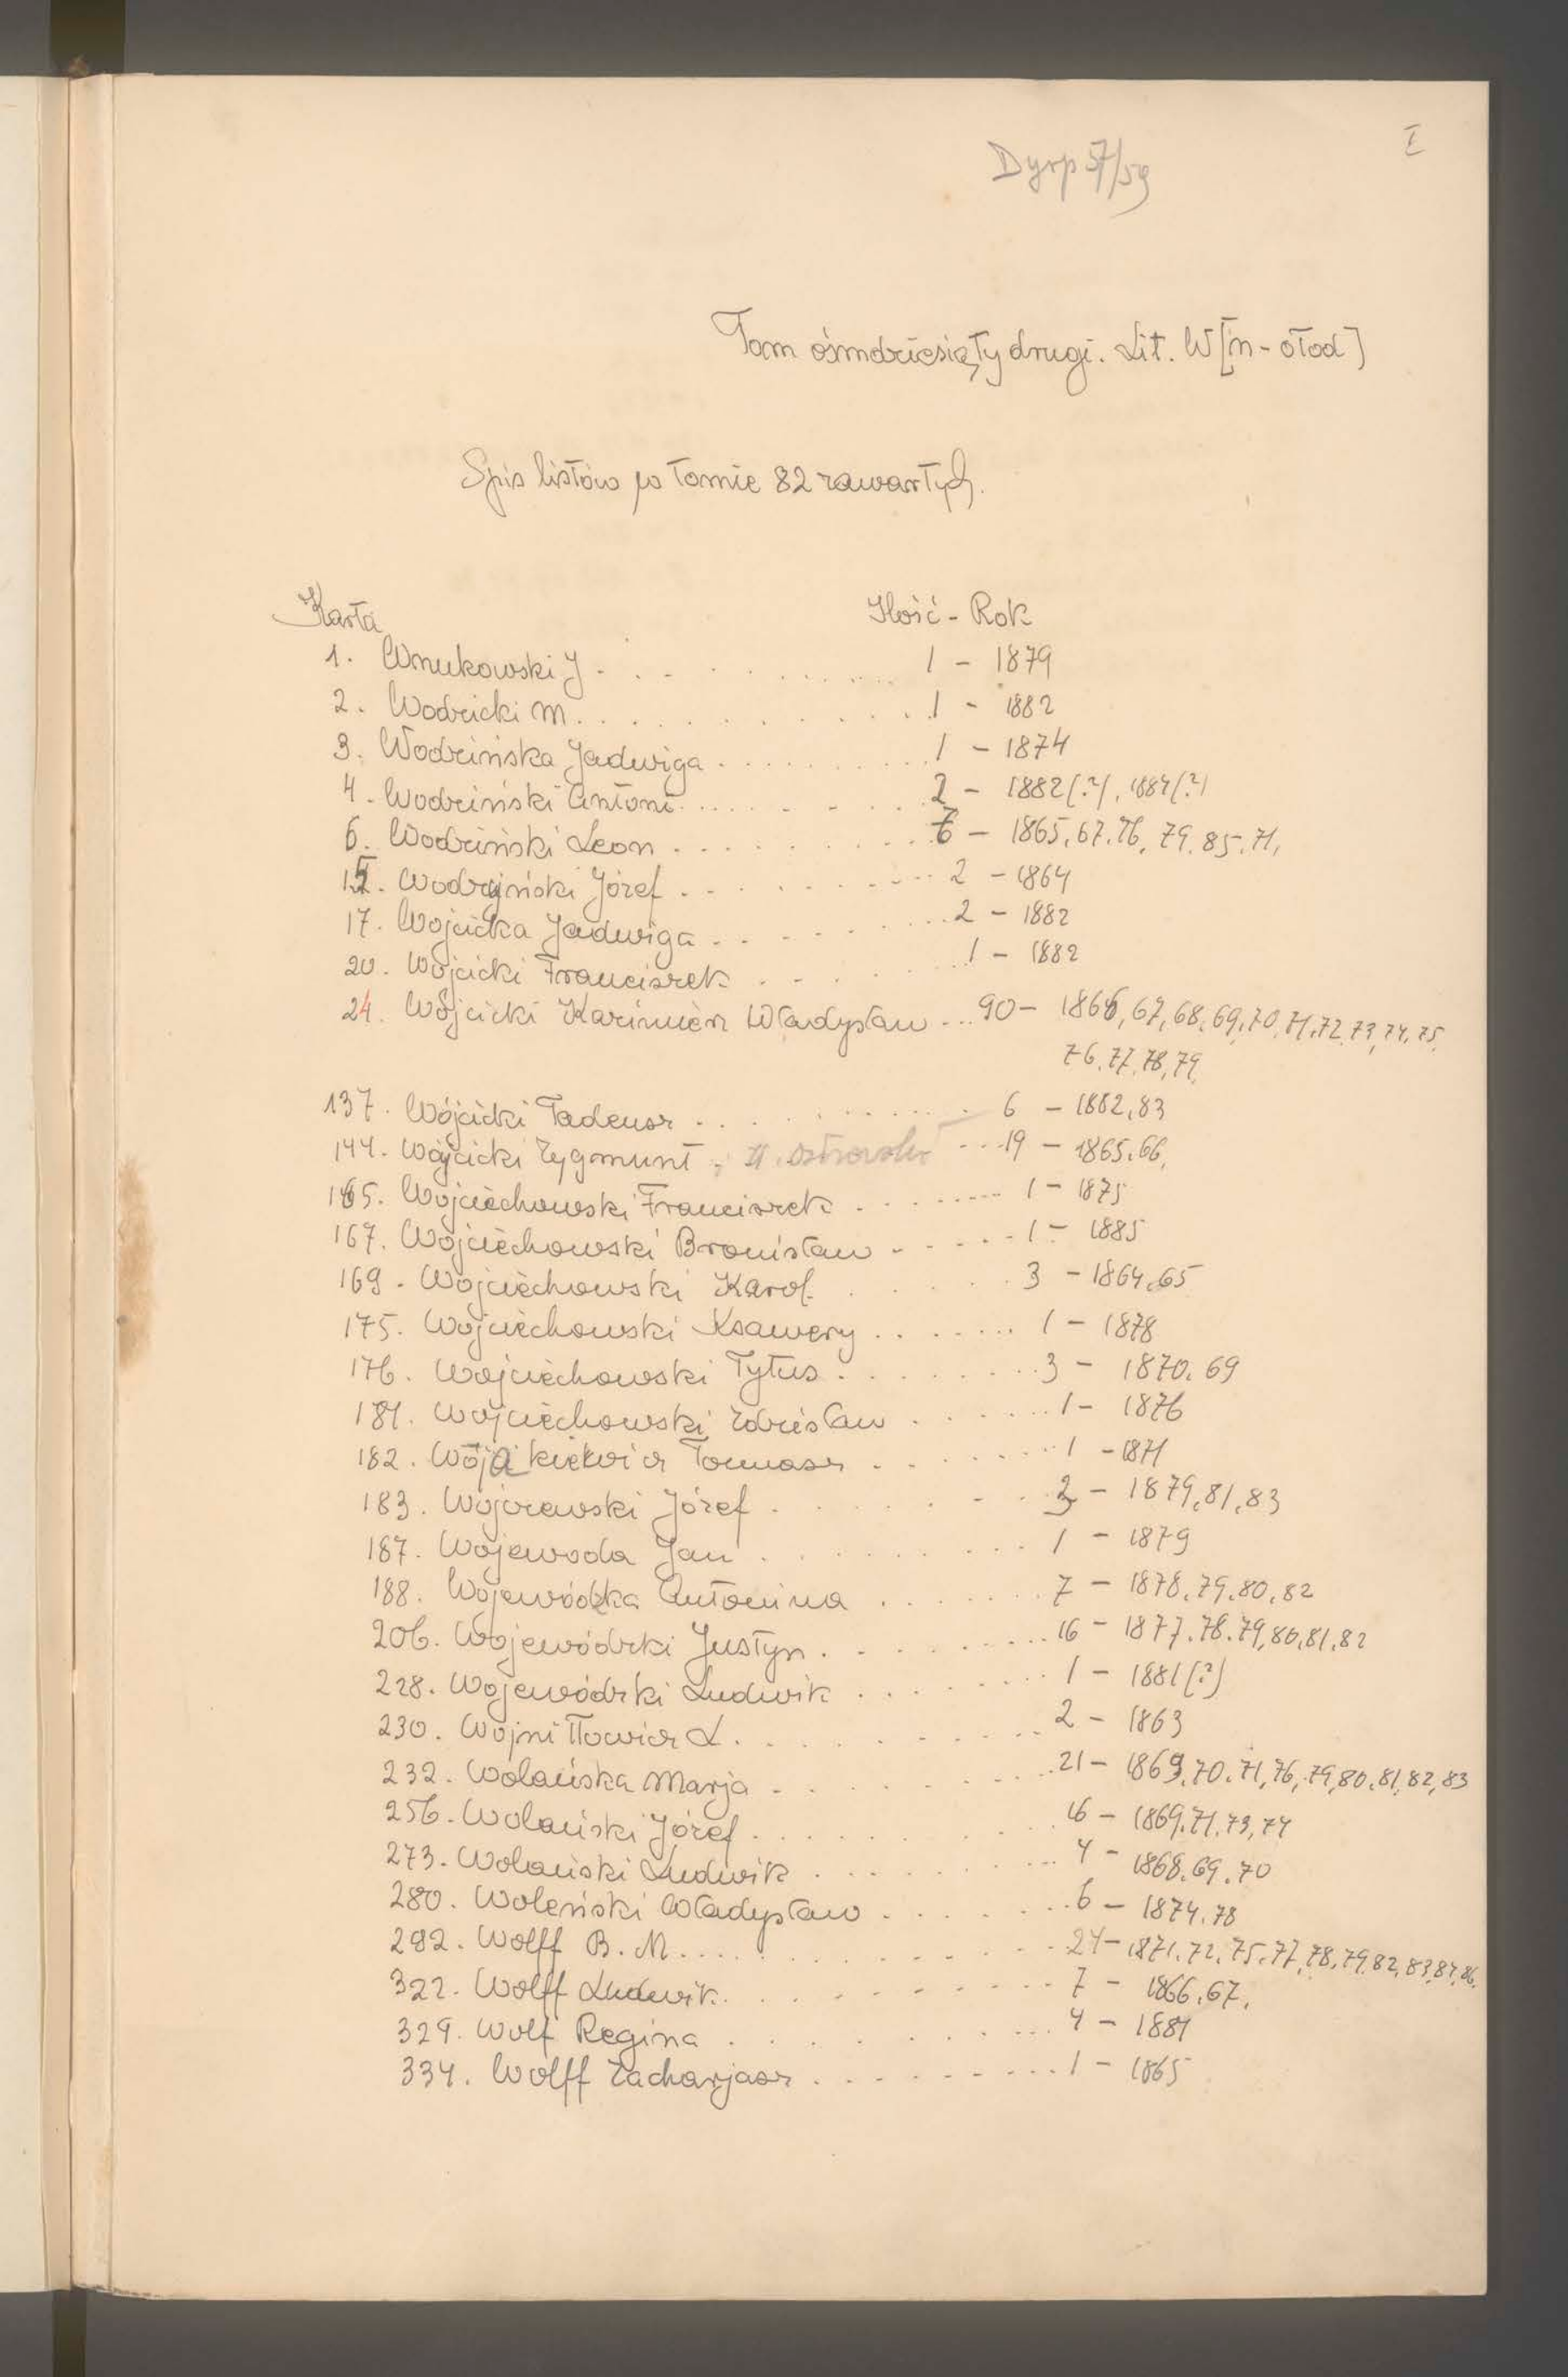 I
Dyrp 57/59
Tom ósmdziesiąty drugi. Lit. W [n - ołod]
Spis listów w tomie 82 zawartych.
Karta Ilość - Rok
1. Wnukowski J. . . . . . . . . . 1 - 1879
2. Wodzicki M. . . . . . . . . . . 1 - 1882
3. Wodzińska Jadwiga . . . . . . . . . . 1 - 1874
4. Wodziński Antoni . . . . . . . . 2 - 1882(?), 1884(?)
6. Wodziński Leon . . . . . . . . . 7 - 1865, 67, 76, 79, 85, 71,
15. Wodzyński Józef . . . . . . . . . 2 - 1864
17. Wojcicka Jadwiga . . . . . . . . 2 - 1882
20. Wojcicki Franciszek . . . . . 1 - 1882
24. Wójcicki Kazimierz Władysław . . . 90 - 1866, 67, 68, 69, 70, 71, 72, 73, 74, 75,
76, 77, 78, 79,
137. Wójcicki Tadeusz . . . . . . . . . 6 - 1882, 83
144. Wójcicki Zygmunt . . . 19 - 1865, 66,
165. Wojciechowski Franciszek . . . . . . . 1 - 1875
167. Wojciechowski Bronisław . . . . . . 1 - 1885
169. Wojciechowski Karol . . . . . 3 - 1864, 65
175. Wojciechowski Ksawery . . . . . . . 1 - 1878
176. Wojciechowski Tytus . . . . . . . . 3 - 1870, 69
181. Wojciechowski Zdzisław . . . . . . 1 - 1876
182. Wojakiewicz Tomasz . . . . . . . 1 - 1871
183. Wojczewski Józef . . . . . . . 3 - 1879, 81, 83
187. Wojewoda Jan . . . . . . . . . 1 - 1879
188. Wojewódzka Antonina . . . . . . . 7 - 1878, 79, 80, 82
206. Wojewódzki Justyn . . . . . . . . 16 - 1877, 78, 79, 80, 81, 82
228. Wojewódzki Ludwik . . . . . . . . 1 - 1881(?)
230. Wojniłłowicz L. . . . . . . . . 2 - 1863
232. Wolańska Marja . . . . . . . . . 21 - 1869, 70, 71, 76, 79, 80, 81, 82, 83
256. Wolański Józef . . . . . . . . . 16 - 1869, 71, 73, 74
273. Wolański Ludwik . . . . . . . . . 4 - 1868, 69, 70
280. Woleński Władysław . . . . . . . . 6 - 1874, 78
292. Wolff B. M. . . . . . . . . . . . 24 - 1871, 72, 75, 77, 78, 79, 82, 83, 84, 86,
322. Wolff Ludwik . . . . . . . . . . 7 - 1866, 67,
329. Wolf Regina . . . . . . . . . . 4 - 1881
334. Wolff Zacharjasz . . . . . . . . . 1 - 1865